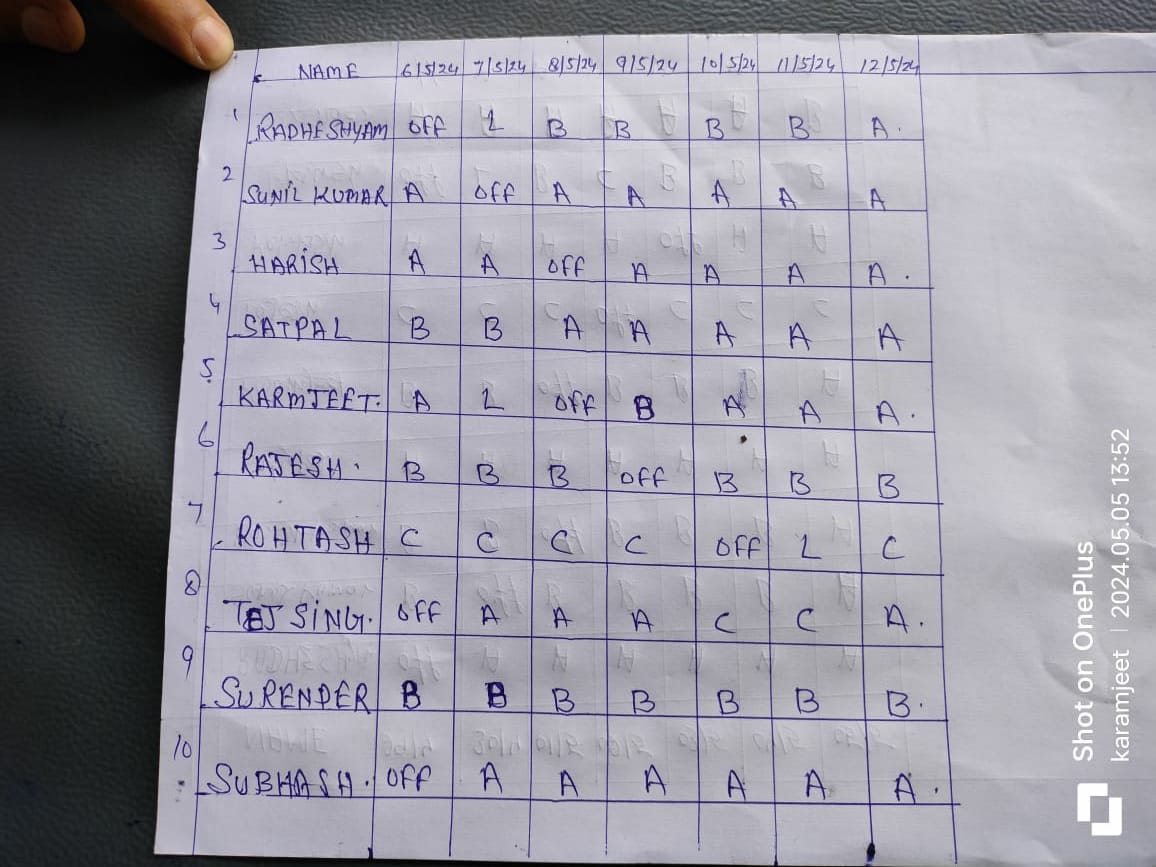 NAME 6/5/24 7/5/24 8/5/24 9/5/24 10/5/24 11/5/24 12/5/24
1 RADHESHYAM OFF L B B B B A.
2 SUNIL KUMAR A OFF A A A A A
3 HARISH A A OFF A A A A.
4 SATPAL B B A A A A A
5 KARMJEET. A L OFF B A A A.
6 RAJESH. B B B OFF B B B
7 ROHTASH C C C C OFF L C
8 TEJ SING. OFF A A A C C A.
9 SURENDER B B B B B B B.
10 SUBHASH. OFF A A A A A A.
Shot on OnePlus
karamjeet | 2024.05.05 13:52